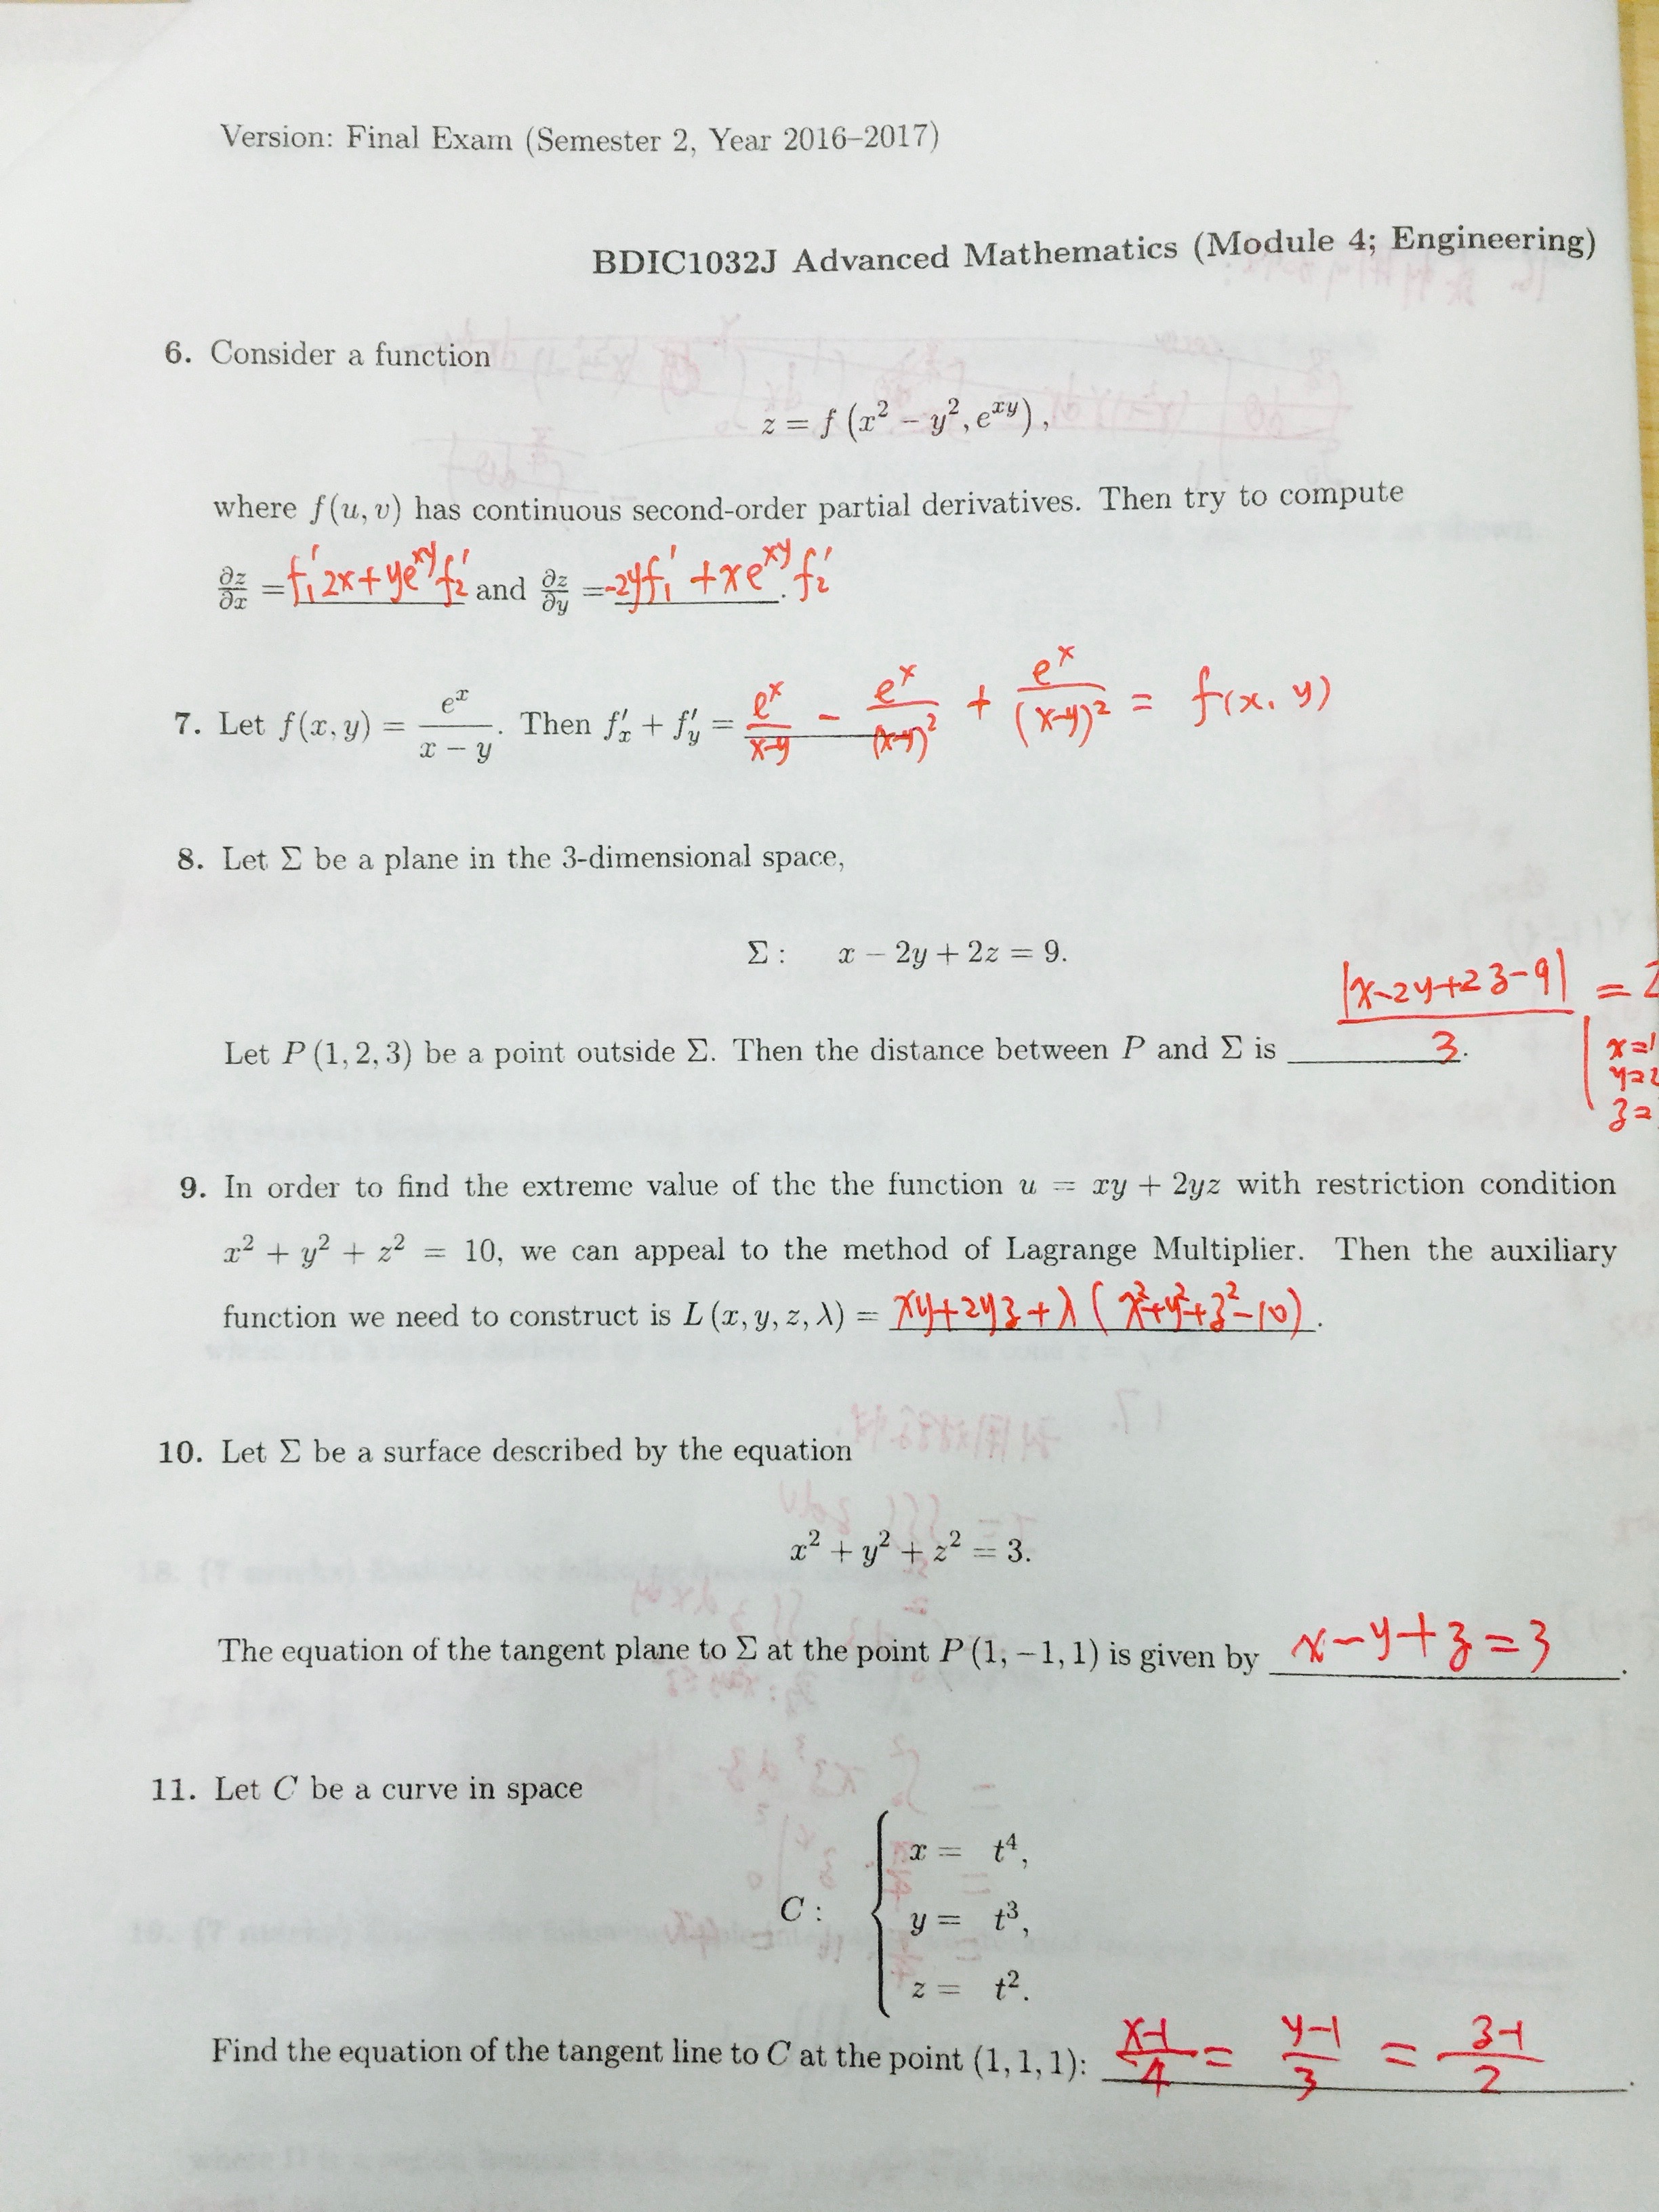 Version: Final Exam (Semester 2, Year 2016–2017)
BDIC1032J Advanced Mathematics (Module 4; Engineering)
6. Consider a function
z = f (x² − y², e^{xy}),
where f(u, v) has continuous second-order partial derivatives. Then try to compute
∂z/∂x = f₁′ 2x + ye^{xy} f₂′ and ∂z/∂y = −2y f₁′ + xe^{xy} f₂′ .
7. Let f(x, y) = e^x/(x − y). Then f′_x + f′_y = e^x/(x−y) − e^x/(x−y)² + e^x/(x−y)² = f(x, y)
8. Let Σ be a plane in the 3-dimensional space,
Σ : x − 2y + 2z = 9.
Let P (1, 2, 3) be a point outside Σ. Then the distance between P and Σ is |x−2y+2z−9|/3 . | x=1 y=2 z= = 2
9. In order to find the extreme value of the the function u = xy + 2yz with restriction condition
x² + y² + z² = 10, we can appeal to the method of Lagrange Multiplier. Then the auxiliary
function we need to construct is L (x, y, z, λ) = xy+2yz+λ(x²+y²+z²−10) .
10. Let Σ be a surface described by the equation
x² + y² + z² = 3.
The equation of the tangent plane to Σ at the point P (1, −1, 1) is given by x−y+z=3 .
11. Let C be a curve in space
x = t⁴,
C : y = t³,
z = t².
Find the equation of the tangent line to C at the point (1, 1, 1): (x−1)/4 = (y−1)/3 = (z−1)/2 .